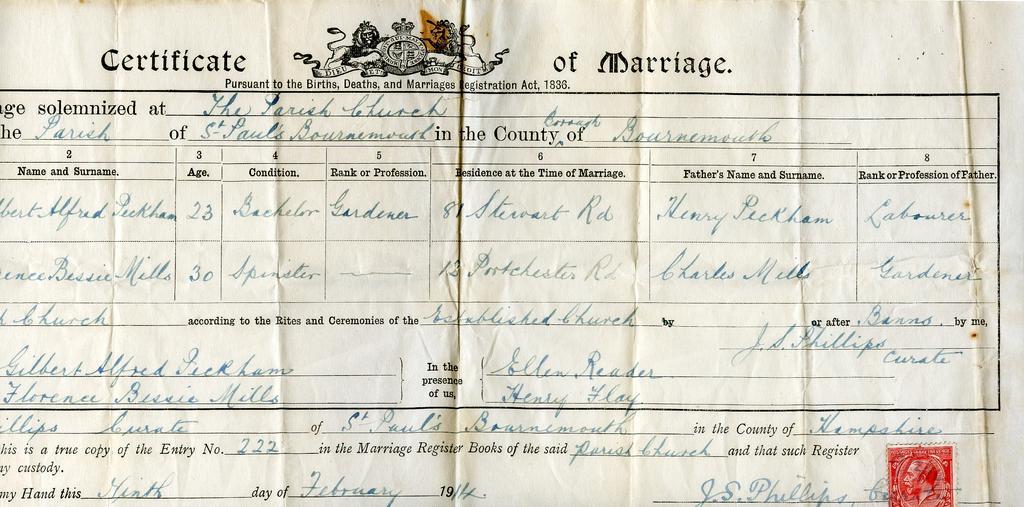 Certificate of Marriage.
DIEU ET MON DROIT
Pursuant to the Births, Deaths, and Marriages Registration Act, 1836.
age solemnized at The Parish Church
he Parish of St Paul's Bournemouth in the County Borough of Bournemouth
2 3 4 5 6 7 8
Name and Surname. Age. Condition. Rank or Profession. Residence at the Time of Marriage. Father's Name and Surname. Rank or Profession of Father.
lbert Alfred Peckham 23 Bachelor Gardener 81 Stewart Rd Henry Peckham Labourer
rence Bessie Mills 30 Spinster — 13 Portchester Rd Charles Mills Gardener
h Church according to the Rites and Ceremonies of the Established Church by or after Banns. by me,
J. S. Phillips
Curate
Gilbert Alfred Peckham In the Ellen Reader
presence
Florence Bessie Mills of us, Henry Flay
illips Curate of St Paul's Bournemouth in the County of Hampshire
his is a true copy of the Entry No. 222 in the Marriage Register Books of the said Parish Church and that such Register
y custody.
my Hand this Ninth day of February 1914.
J. S. Phillips,